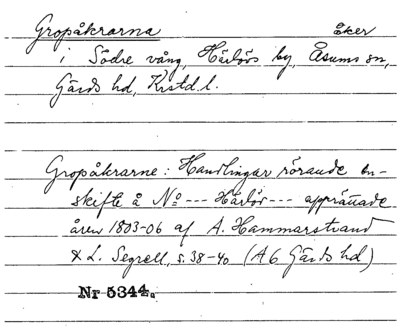 Gropåkrarna åker
i Södre vång, Härlövs by, Åsums sn,
Gärds hd, Krstd l.
Gropåkrarne: Handlingar rörande en-
skifte å No --- Härlöv --- upprättade
åren 1803-06 af A. Hammarstrand
& L. Segrell, s. 38-40 (A6 Gärds hd)
Nr 5344a